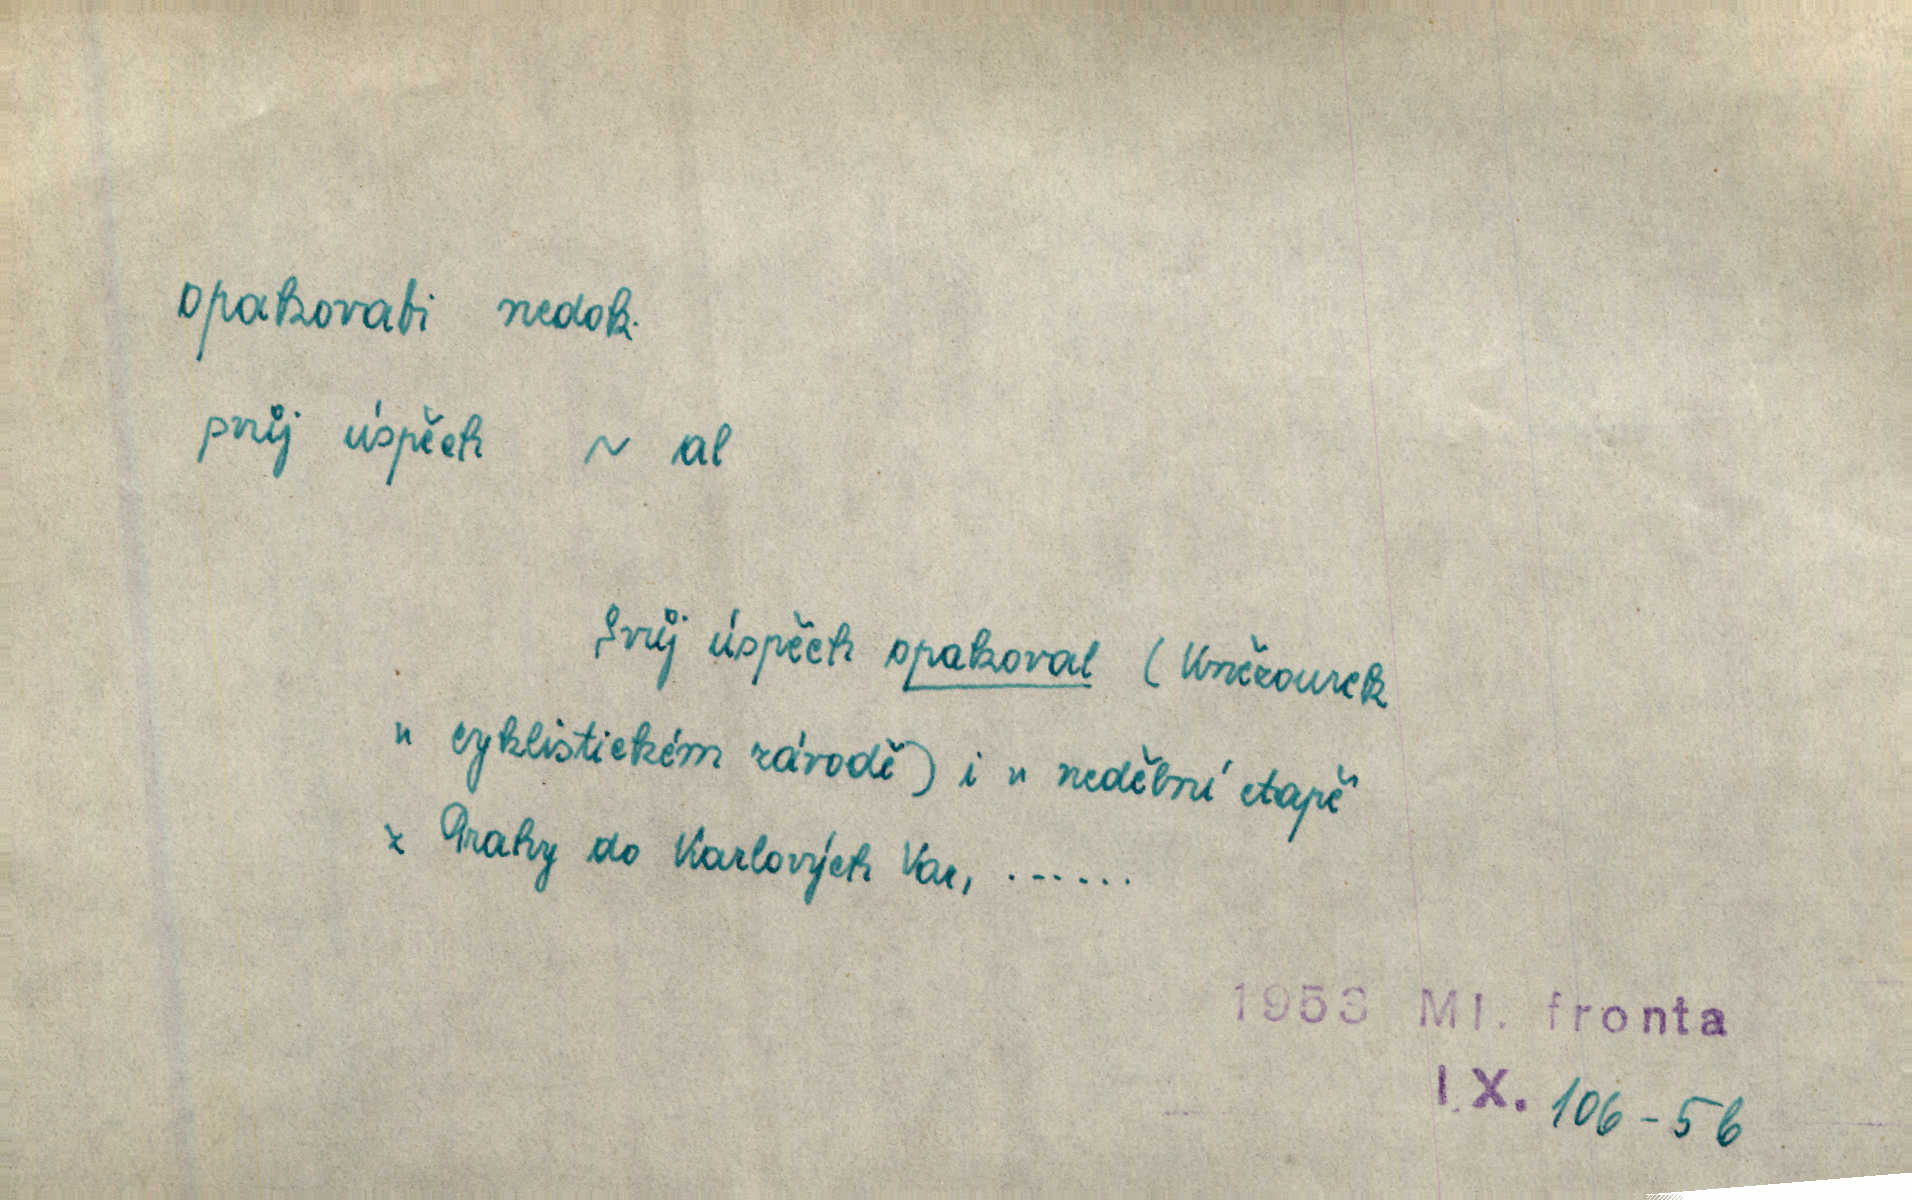 opakovati nedok.
svůj úspěch ~ al
Svůj úspěch opakoval (Kněžourek
v cyklistickém závodě) i v nedělní etapě
z Prahy do Karlových Var, ......
1953 Ml. fronta
IX. 106-5b